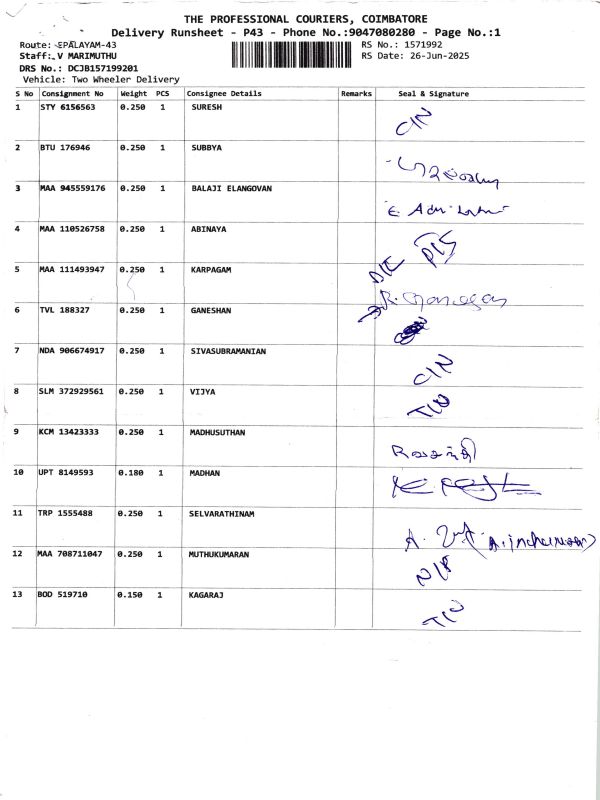 THE PROFESSIONAL COURIERS, COIMBATORE
Delivery Runsheet - P43 - Phone No.:9047080280 - Page No.:1
Route: EPALAYAM-43 RS No.: 1571992
Staff: V MARIMUTHU RS Date: 26-Jun-2025
DRS No.: DCJB157199201
Vehicle: Two Wheeler Delivery
S No Consignment No Weight PCS Consignee Details Remarks Seal & Signature
1 STY 6156563 0.250 1 SURESH CIN
2 BTU 176946 0.250 1 SUBBYA
3 MAA 945559176 0.250 1 BALAJI ELANGOVAN
4 MAA 110526758 0.250 1 ABINAYA
5 MAA 111493947 0.250 1 KARPAGAM
6 TVL 188327 0.250 1 GANESHAN
7 NDA 906674917 0.250 1 SIVASUBRAMANIAN CIN
8 SLM 372929561 0.250 1 VIJYA
9 KCM 13423333 0.250 1 MADHUSUTHAN
10 UPT 8149593 0.180 1 MADHAN
11 TRP 1555488 0.250 1 SELVARATHINAM
12 MAA 708711047 0.250 1 MUTHUKUMARAN
13 BOD 519710 0.150 1 KAGARAJ